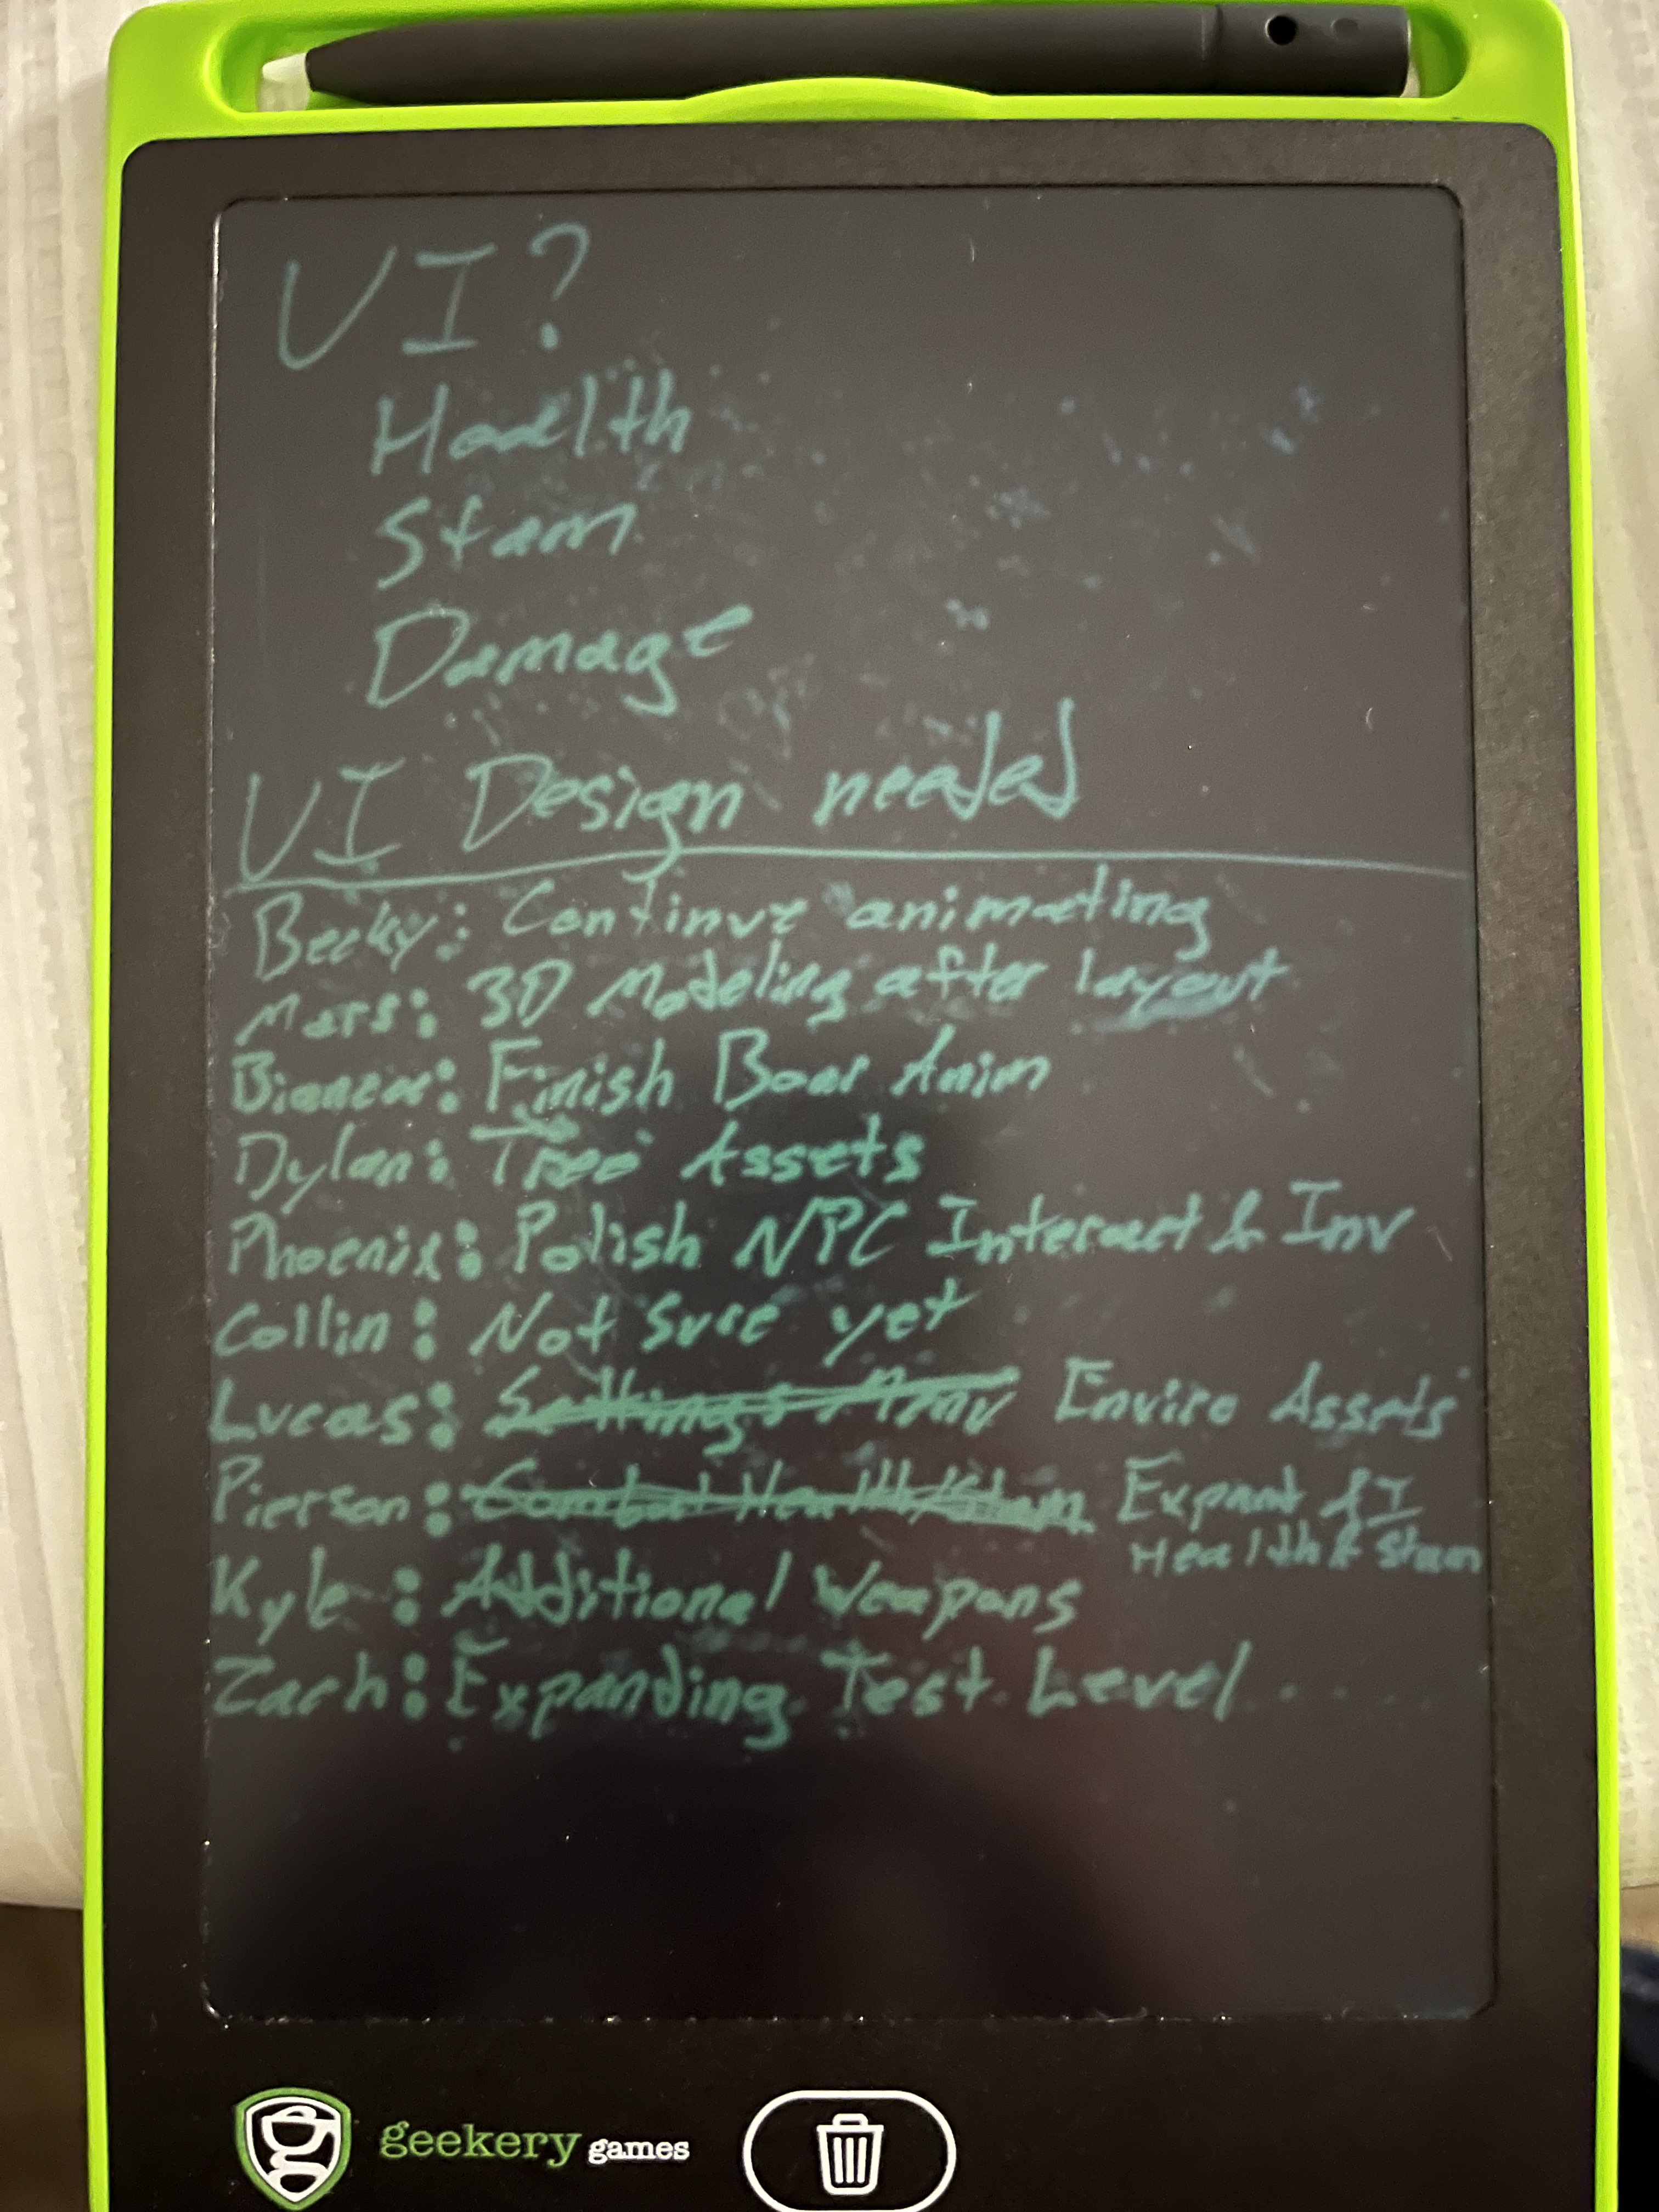 UI?
Health
Stam
Damage
UI Design needed
Becky: Continue animating
Mars: 3D Modeling after layout
Bianca: Finish Boar Anim
Dylan: Tree Assets
Phoenix: Polish NPC Interact & Inv
Collin: Not sure yet
Lucas: Enviro Assets
Pierson: Combat Health/Stam Expand
Health & Stam
Kyle: Additional Weapons
Zach: Expanding Test Level
geekery games